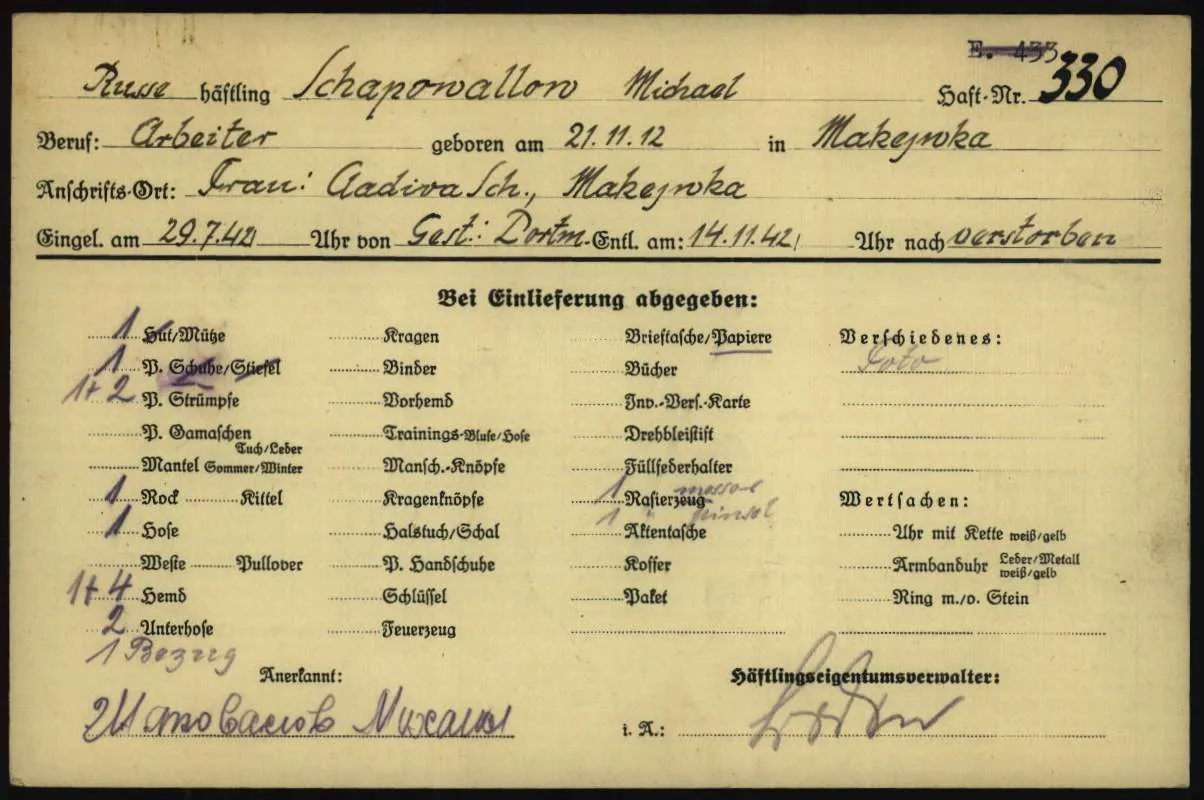 E. 433
Russe häftling Schapowallow Michael Haft-Nr. 330
Beruf: Arbeiter geboren am 21.11.12 in Makejwka
Anschrifts-Ort: Frau: Sch., Makejwka
Eingel. am 29.7.42 Uhr von Gest: Dortm. Entl. am: 14.11.42 Uhr nach verstorben
Bei Einlieferung abgegeben:
1 Hut/Mütze Kragen Brieftasche/Papiere Verschiedenes:
1 P. Schuhe/Stiefel Binder Bücher Foto
1+2 P. Strümpfe Vorhemd Inv.-Vers.-Karte
P. Gamaschen Trainings-Bluse/Hose Drehbleistift
Tuch/Leder
Mantel Sommer/Winter Mansch.-Knöpfe Füllfederhalter
1 Rock Kittel Kragenknöpfe 1 Rasierzeug messer Wertsachen:
1 " pinsel
1 Hose Halstuch/Schal Aktentasche Uhr mit Kette weiß/gelb
Weste Pullover P. Handschuhe Koffer Armbanduhr Leder/Metall
weiß/gelb
1+4 Hemd Schlüssel Paket Ring m./o. Stein
2 Unterhose Feuerzeug
1 Bezug
Anerkannt: Häftlingseigentumsverwalter:
Михаил
i. A.: